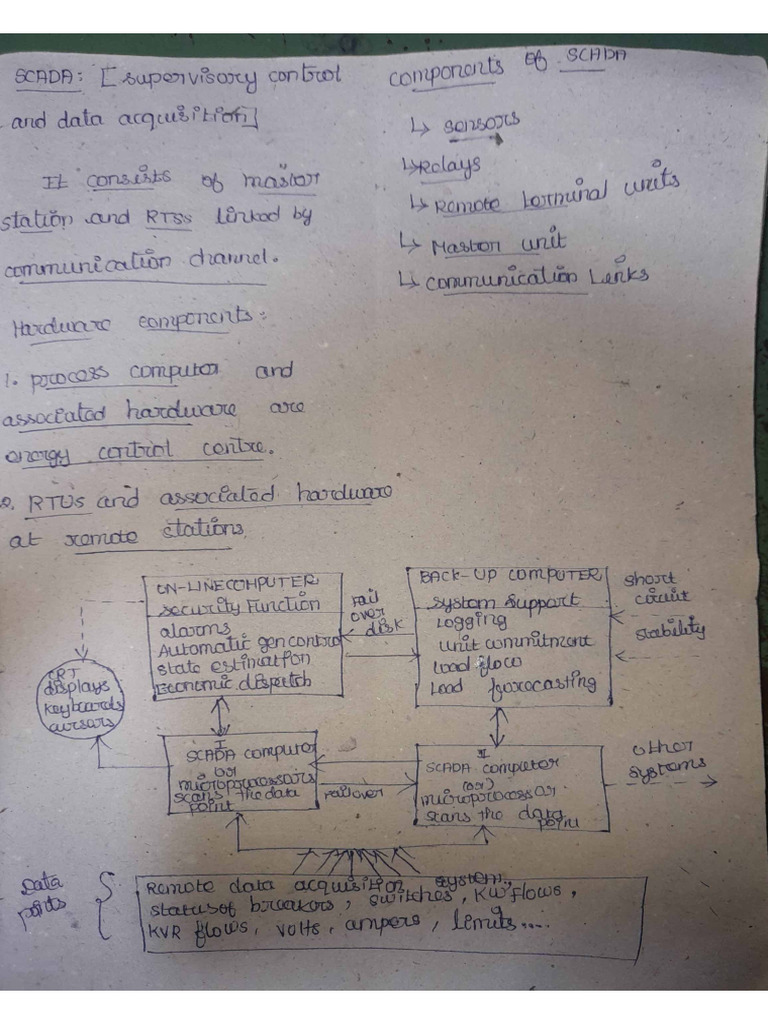 SCADA: [supervisory control
and data acquisition]
It consists of master
station and RTSs linked by
communication channel.
Hardware components:
1. process computer and
associated hardware are
energy control centre.
2. RTUs and associated hardware
at remote stations.
components of SCADA
↳ sensors
↳ Relays
↳ Remote terminal units
↳ Master unit
↳ communication Links
ON-LINE COMPUTER
security Function
alarms
Automatic gen control
state estimation
Economic dispatch
fail
over
disk
BACK-UP COMPUTER
system support
Logging
unit commitment
load flow
Load forecasting
short
circuit
stability
CRT
displays
keyboards
cursors
I
SCADA computer
or
microprocessors
scans the data
point
failover
II
SCADA computer
(or)
microprocessor
scans the data
point
other
systems
Data
points
Remote data acquisition system,
status of breakers, switches, KW flows,
KVR flows, volts, ampers, limits....